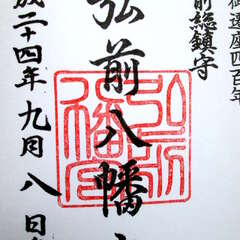 御遷座四百年
前総鎮守
弘前八幡
成二十四年九月八日
弘前
八幡宮